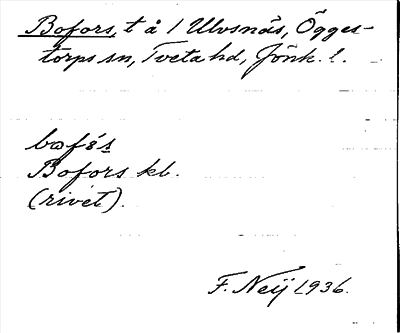 Bofors, t å 1 Ulvsnäs, Ögges-
torps sn, Tveta hd, Jönk. l.
bofó̀s
Bofors kb.
(rivet).
F. Neij 1936.